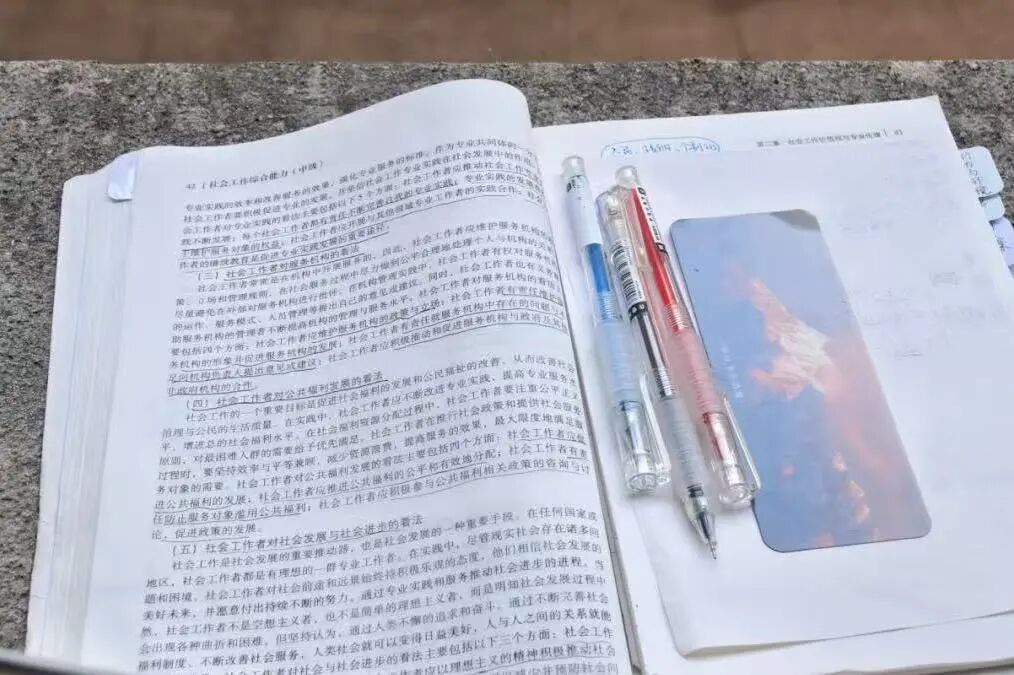 42 | 社会工作综合能力（中级）
专业实践的效率和改善服务的效果，强化专业服务的标准。作为专业共同体的一
社会工作者要积极促进专业的发展，并坚信社会工作专业实践在社会发展中的作用。
社会工作者对专业实践的看法主要包括以下5个方面：社会工作者应推动社会工作专业实
践不断发展；每个社会工作者都有责任不断完善自我的专业实践；专业实践的发展
于维护服务对象的权益；社会工作者应开展与其他领域专业工作者的实践合作；社会
作者的继续教育是促进专业实践发展的重要途径。
（三）社会工作者对服务机构的看法
社会工作者常常是在机构中开展服务的，因此，社会工作者应维护服务机构的
策、立场和管理规则，在社会服务过程中尽力做到公平合理地处理个人与机构的关
尽量避免在外部对服务机构进行批评。在机构管理实践中，社会工作者有权对服务机
的运作、服务模式、人员管理等提出自己的意见或建议，同时，社会工作者也有义务
助服务机构的管理者不断提高机构的管理与服务水平。社会工作者对服务机构的看法
要包括四个方面：社会工作者应维护服务机构的政策与立场；社会工作者有责任维护
务机构的形象并促进服务机构的发展；社会工作者有责任就服务机构中存在的问题与
足向机构负责人提出意见或建议；社会工作者应积极推动和促进服务机构与政府及其他
非政府机构的合作。
（四）社会工作者对公共福利发展的看法
社会工作的一个重要目标是促进社会福利的发展和公民福祉的改善，从而改善社会
治理与公民的生活质量。在实践中，社会工作者应不断改进专业实践、提高专业服务水
平，增进总的社会福利水平。在社会福利资源分配过程中，社会工作者要注重公平正义
原则，对最困难人群的需要给予优先满足。社会工作者在推行社会政策和提供社会服
过程时，要坚持效率与平等兼顾，减少资源浪费，提高服务的效果，最大限度地满足服
务对象的需要。社会工作者对公共福利发展的看法主要包括四个方面：社会工作者应促
进公共福利的发展；社会工作者应推进公共福利的公平和有效地分配；社会工作者有责
任防止服务对象滥用公共福利；社会工作者应积极参与公共福利相关政策的咨询与讨
论，促进政策的发展。
（五）社会工作者对社会发展与社会进步的看法
社会工作是社会发展的重要推动器，也是社会发展的一种重要手段。在任何国家或
地区，社会工作者都是有理想的一群专业工作者。在实践中，尽管现实社会存在诸多问
题和困境，社会工作者对社会前途和远景始终持积极乐观的态度，他们相信社会发展的
美好未来，并愿意付出持续不断的努力，通过专业实践和服务推动社会进步的进程。当
然，社会工作者不是空想主义者，也不是简单的理想主义者，而是明知社会发展过程中
会出现各种曲折和困难，但坚持认为，通过人类不懈的追求和奋斗，通过不断完善社会
福利制度、不断改善社会服务，人类社会就可以变得日益美好，人与人之间的关系就能
社会工作者对社会与社会进步的看法主要包括以下三个方面：社会工作
者应以理想主义的精神积极推动社会
第二章 社会工作价值观与专业伦理 | 43